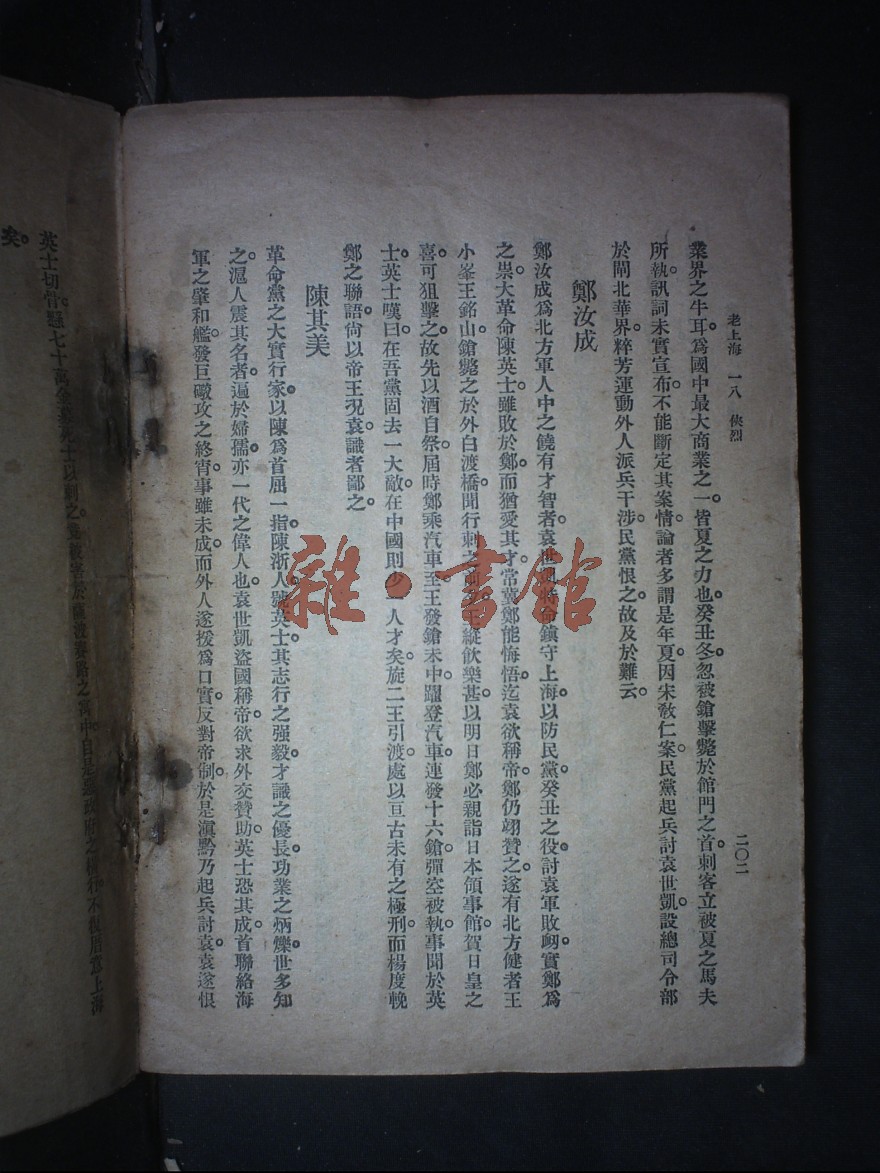 老上海 一八 俠烈
二〇二
業界之牛耳。爲國中最大商業之一。皆夏之力也。癸丑冬。忽被鎗擊斃於館門之首。刺客立被夏之馬夫
所執。訊詞未實宣布。不能斷定其案情。論者多謂是年夏。因宋敎仁案。民黨起兵討袁世凱。設總司令部
於閘北華界。粹芳運動外人派兵干涉。民黨恨之。故及於難云。
鄭汝成
鄭汝成爲北方軍人中之饒有才智者。袁世凱特命鎮守上海。以防民黨。癸丑之役。討袁軍敗衂。實鄭爲
之祟。大革命陳英士。雖敗於鄭。而猶愛其才。常冀鄭能悔悟。迄袁欲稱帝。鄭仍翊贊之。遂有北方健者王
小峯王銘山。鎗斃之於外白渡橋。聞行刺之前 王縱飲樂甚。以明日鄭必親詣日本領事館。賀日皇之
喜。可狙擊之。故先以酒自祭。屆時鄭乘汽車至。王發鎗未中。躍登汽車。連發十六鎗。彈空被執。事聞於英
士。英士嘆曰。在吾黨固去一大敵。在中國則少一人才矣。旋二王引渡。處以亘古未有之極刑。而楊度輓
鄭之聯語。尙以帝王況袁。識者鄙之。
陳其美
革命黨之大實行家。以陳爲首屈一指。陳浙人。號英士。其志行之强毅。才識之優長。功業之炳爍。世多知
之。滬人震其名者。遍於婦孺。亦一代之偉人也。袁世凱盜國稱帝。欲求外交贊助。英士恐其成。首聯絡海
軍之肇和艦。發巨礮攻之終宵。事雖未成。而外人遂援爲口實。反對帝制。於是滇黔乃起兵討袁。袁遂恨
英士切骨。懸七十萬金 以刺之 之寓中。自是 不復 爲上海
矣。
雜·書館